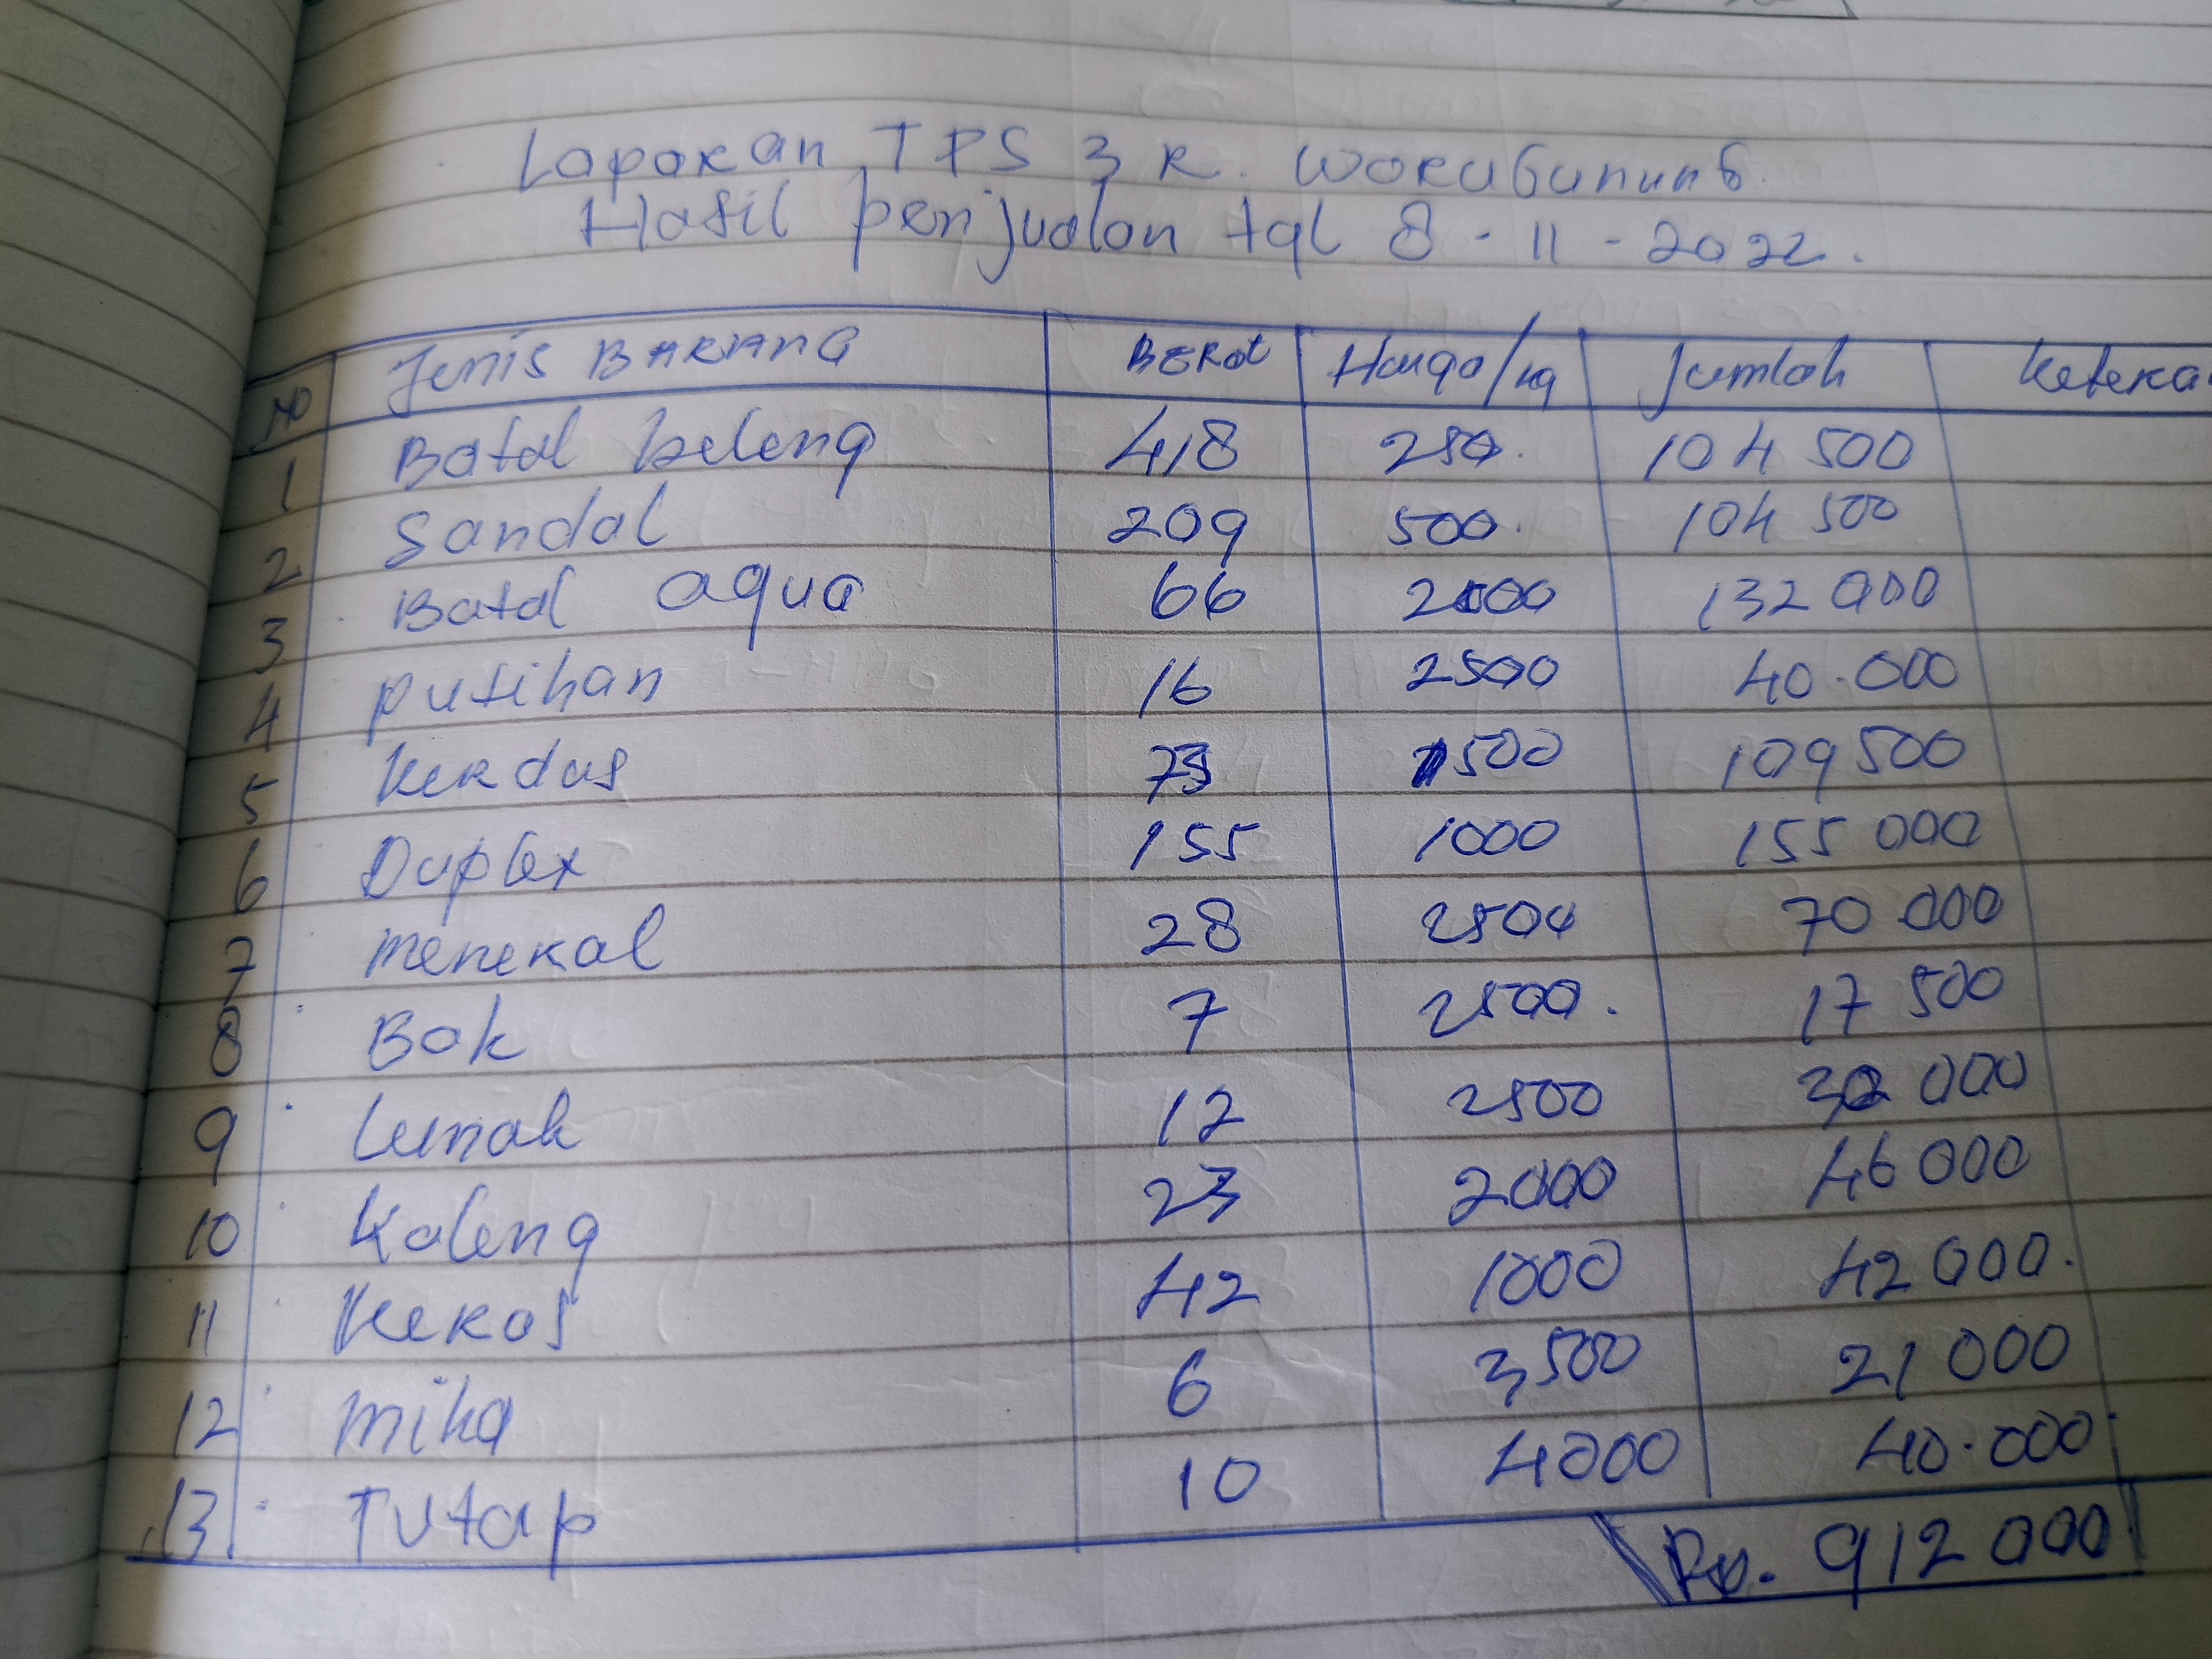 Laporan TPS 3 R. WORUGUNUNG.
Hasil penjualan tgl 8 - 11 - 2022.
NO Jenis BARANG BERat Harga/kg Jumlah Ketera
1 Botol beleng 418 250. 104 500
2 Sandal 209 500. 104 500
3 Botol aqua 66 2000 132 000
4 putihan 16 2500 40.000
5 Kerdus 73 1500 109 500
6 Duplex 155 1000 155 000
7 meneral 28 2500 70 000
8 Bok 7 2500. 17 500
9 Lunak 12 2500 30 000
10 Kaleng 23 2000 46 000
11 Keras 42 1000 42 000.
12 mika 6 3,500 21 000
13 Tutap 10 4000 40.000
Rp. 912 000